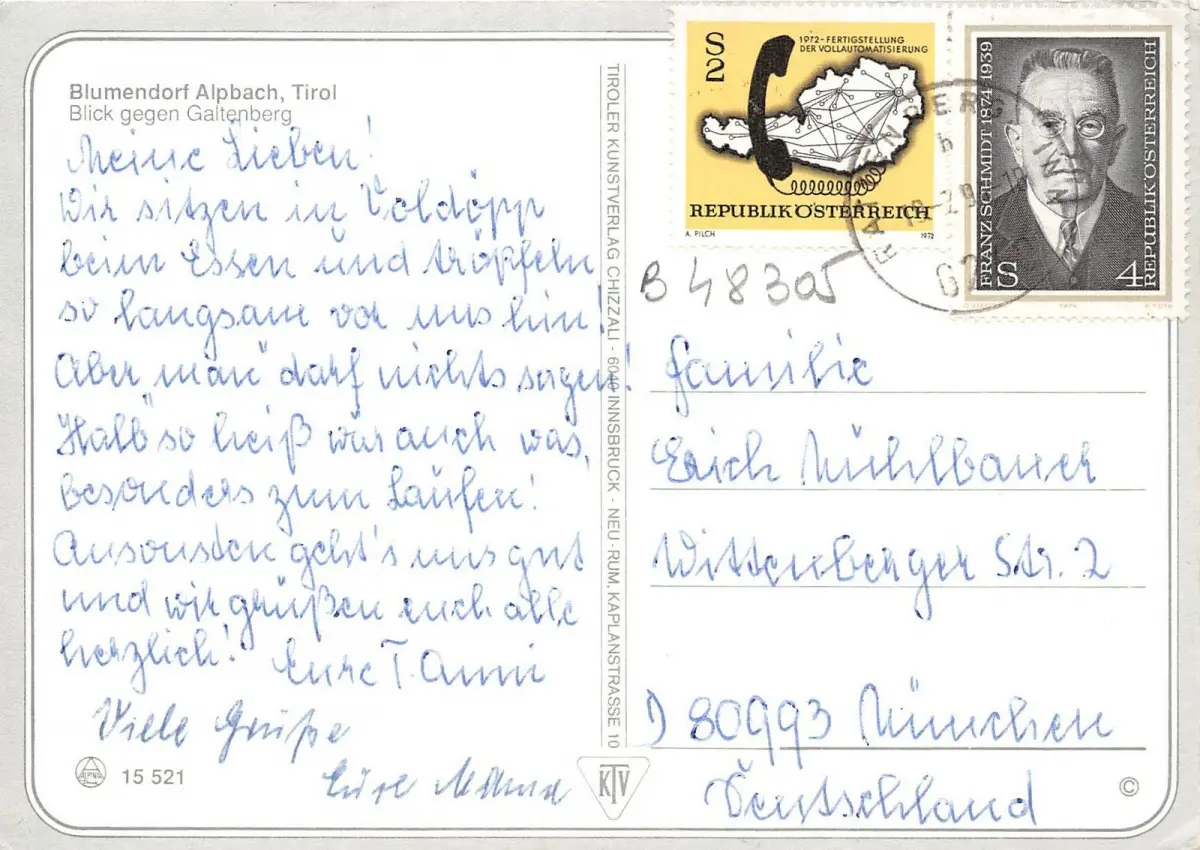 Blumendorf Alpbach, Tirol
Blick gegen Galtenberg
Meine Lieben!
Wir sitzen in Voldöpp
beim Essen und tröpfeln
so langsam vor uns hin!
Aber „man“ darf nichts sagen!
Halb so heiß wär auch was,
besonders zum Laufen!
Ansonsten geht's uns gut
und wir grüßen euch alle
herzlich! Eure T. Anni
Viele Grüße
Eure
15 521
TIROLER KUNSTVERLAG CHIZZALI - 6040 INNSBRUCK - NEU-RUM, KAPLANSTRASSE 10
KTV
S 2
1972-FERTIGSTELLUNG
DER VOLLAUTOMATISIERUNG
REPUBLIK ÖSTERREICH
A. PILCH 1972
FRANZ SCHMIDT 1874-1939
REPUBLIK ÖSTERREICH
S 4
B 48305
Familie
Erich Mühlbauer
Wittenberger Str. 2
D 80993 München
Deutschland
©